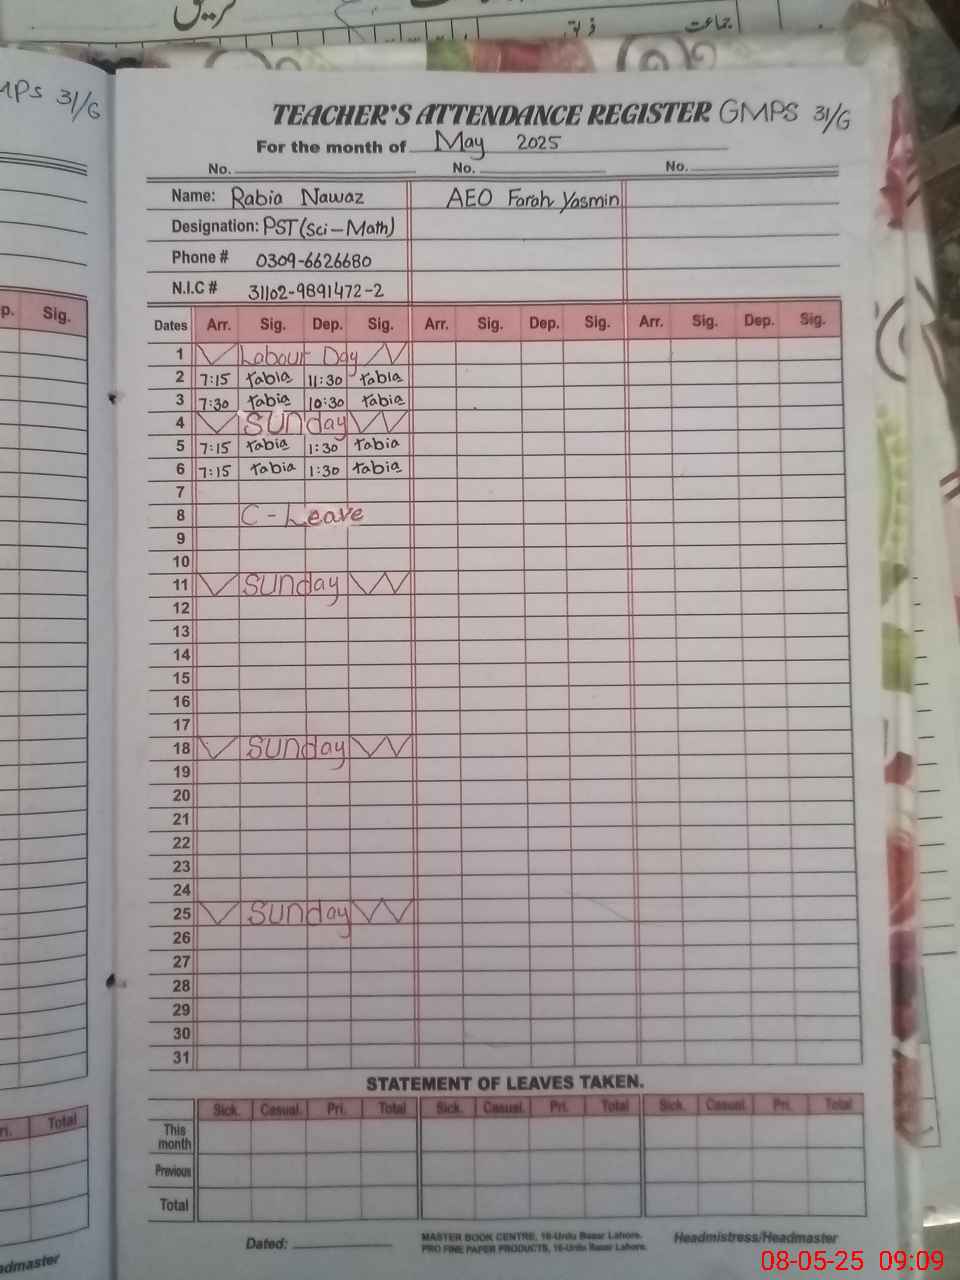 جماعت
فریق
MPS 31/G
TEACHER'S ATTENDANCE REGISTER GMPS 31/G
For the month of May 2025
No. No. No.
Name: Rabia Nawaz AEO Farah Yasmin
Designation: PST (Sci-Math)
Phone # 0309-6626680
N.I.C # 31102-9891472-2
p. Sig.
Dates Arr. Sig. Dep. Sig. Arr. Sig. Dep. Sig. Arr. Sig. Dep. Sig.
1 Labour Day
2 7:15 rabia 11:30 rabia
3 7:30 rabia 10:30 rabia
4 Sunday
5 7:15 rabia 1:30 rabia
6 7:15 rabia 1:30 rabia
7
8 C - Leave
9
10
11 Sunday
12
13
14
15
16
17
18 Sunday
19
20
21
22
23
24
25 Sunday
26
27
28
29
30
31
STATEMENT OF LEAVES TAKEN.
ri. Total
Sick. Casual. Pri. Total Sick. Casual. Pri. Total Sick. Casual. Pri. Total
This month
Previous
Total
Dated:
MASTER BOOK CENTRE, 16-Urdu Bazar Lahore.
PRO FINE PAPER PRODUCTS, 16-Urdu Bazar Lahore.
Headmistress/Headmaster
admaster
08-05-25 09:09